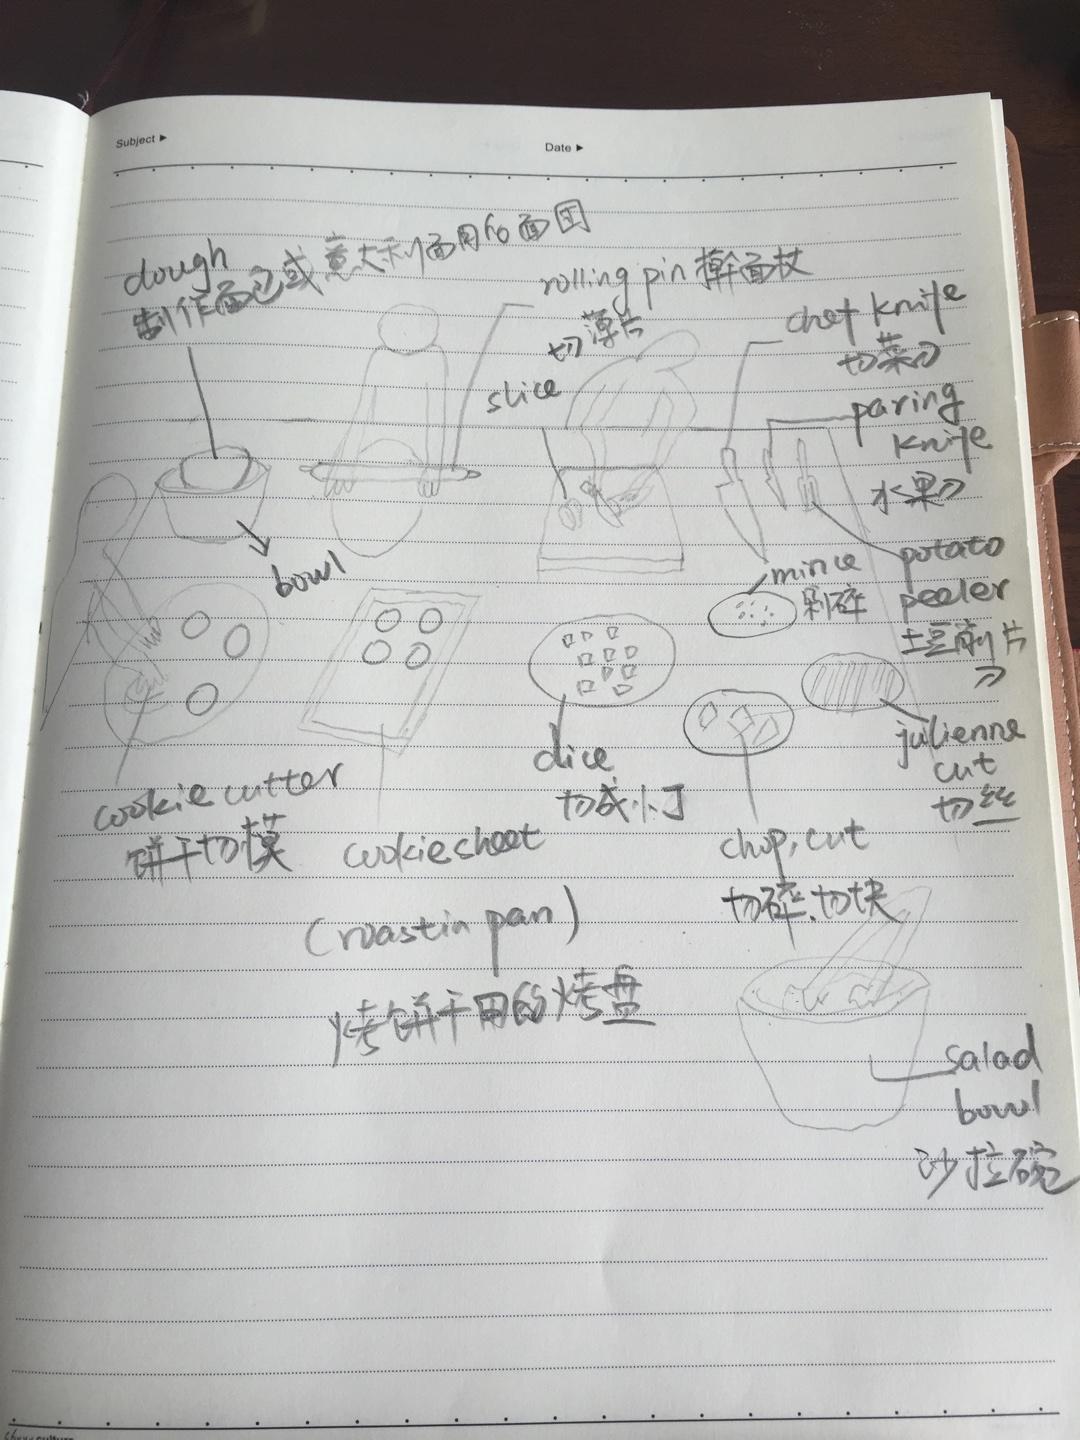 Subject ▶
Date ▶
dough
制作面包或意大利面用的面团
rolling pin 擀面杖
切薄片
slice
chef knife
切菜刀
paring
knife
水果刀
bowl
mince
剁碎
potato
peeler
土豆削片
刀
julienne
cut
切丝
dice
切成小丁
cookie cutter
饼干切模
cookie sheet
(roastin pan)
烤饼干用的烤盘
chop, cut
切碎、切块
salad
bowl
沙拉碗